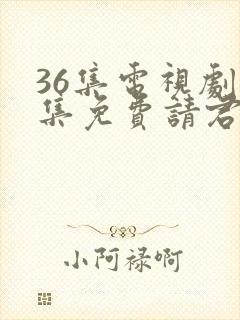 36集電視劇
集免費請君
小阿祿啊